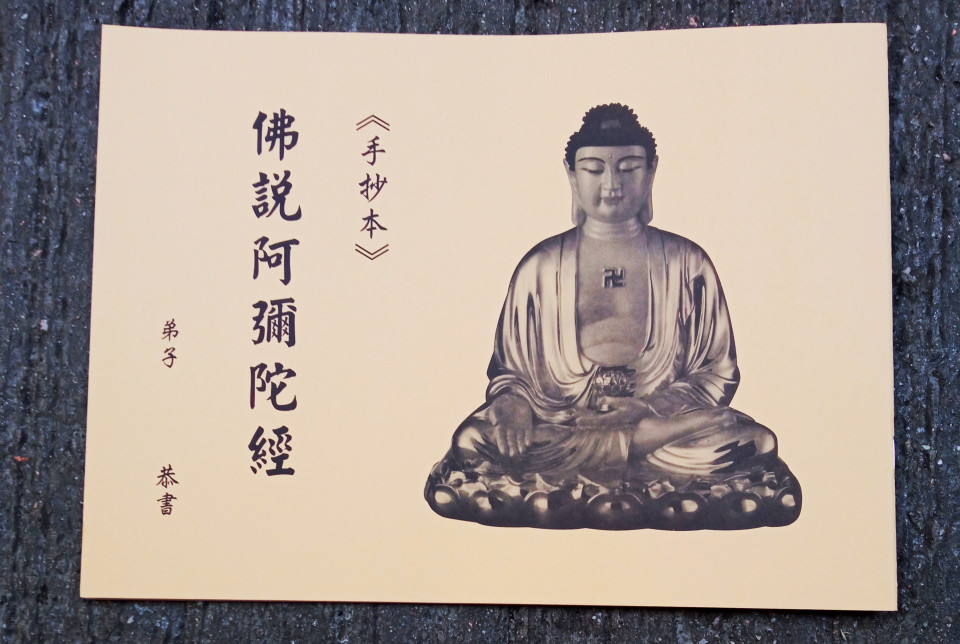 《手抄本》
佛説阿彌陀經
弟子 恭書